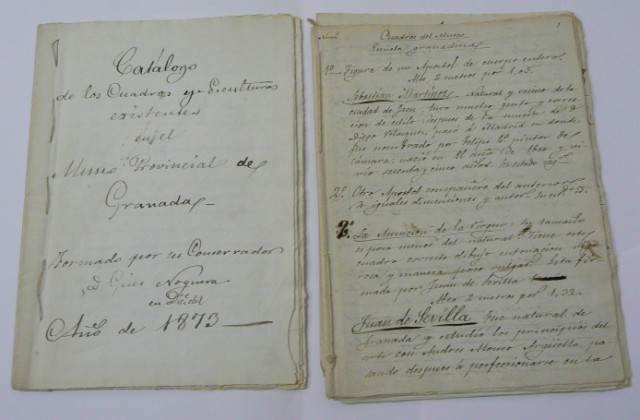 Catálogo
de los Cuadros y Esculturas
existentes
en el
Museo Provincial de
Granada
Formado por su Conservador
D. Ginés Noguera
en Dicbre
Año de 1873
Cuadros del Museo
Escuela granadina
1
1º Figura de un Apostol de cuerpo entero.
Alto 2 metros por 1,03.
Sebastian Martinez Natural y vecino de la
ciudad de Jaen, tuvo mucho gusto y correc
cion de estilo. Despues de la muerte de D
Diego Velazquez, pasó á Madrid en donde
fue nombrado por Felipe 4º pintor de
cámara: nació en el año de 1602 y vi
vio sesenta y cinco años.
2º Otro Apostol compañero del anterior
é iguales dimensiones y autor.
3º La Asuncion de la Virgen: su tamaño
es poco menos del natural. Tiene este
cuadro correcto dibujo entonacion
y manera poco vulgar. Esta fir
mado por Juan de Sevilla
Alto 2 metros por 1,32.
Juan de Sevilla fue natural de
Granada y estudió los principios del
arte con Andres Alonso Argüello pa
sando despues á perfeccionarse en la